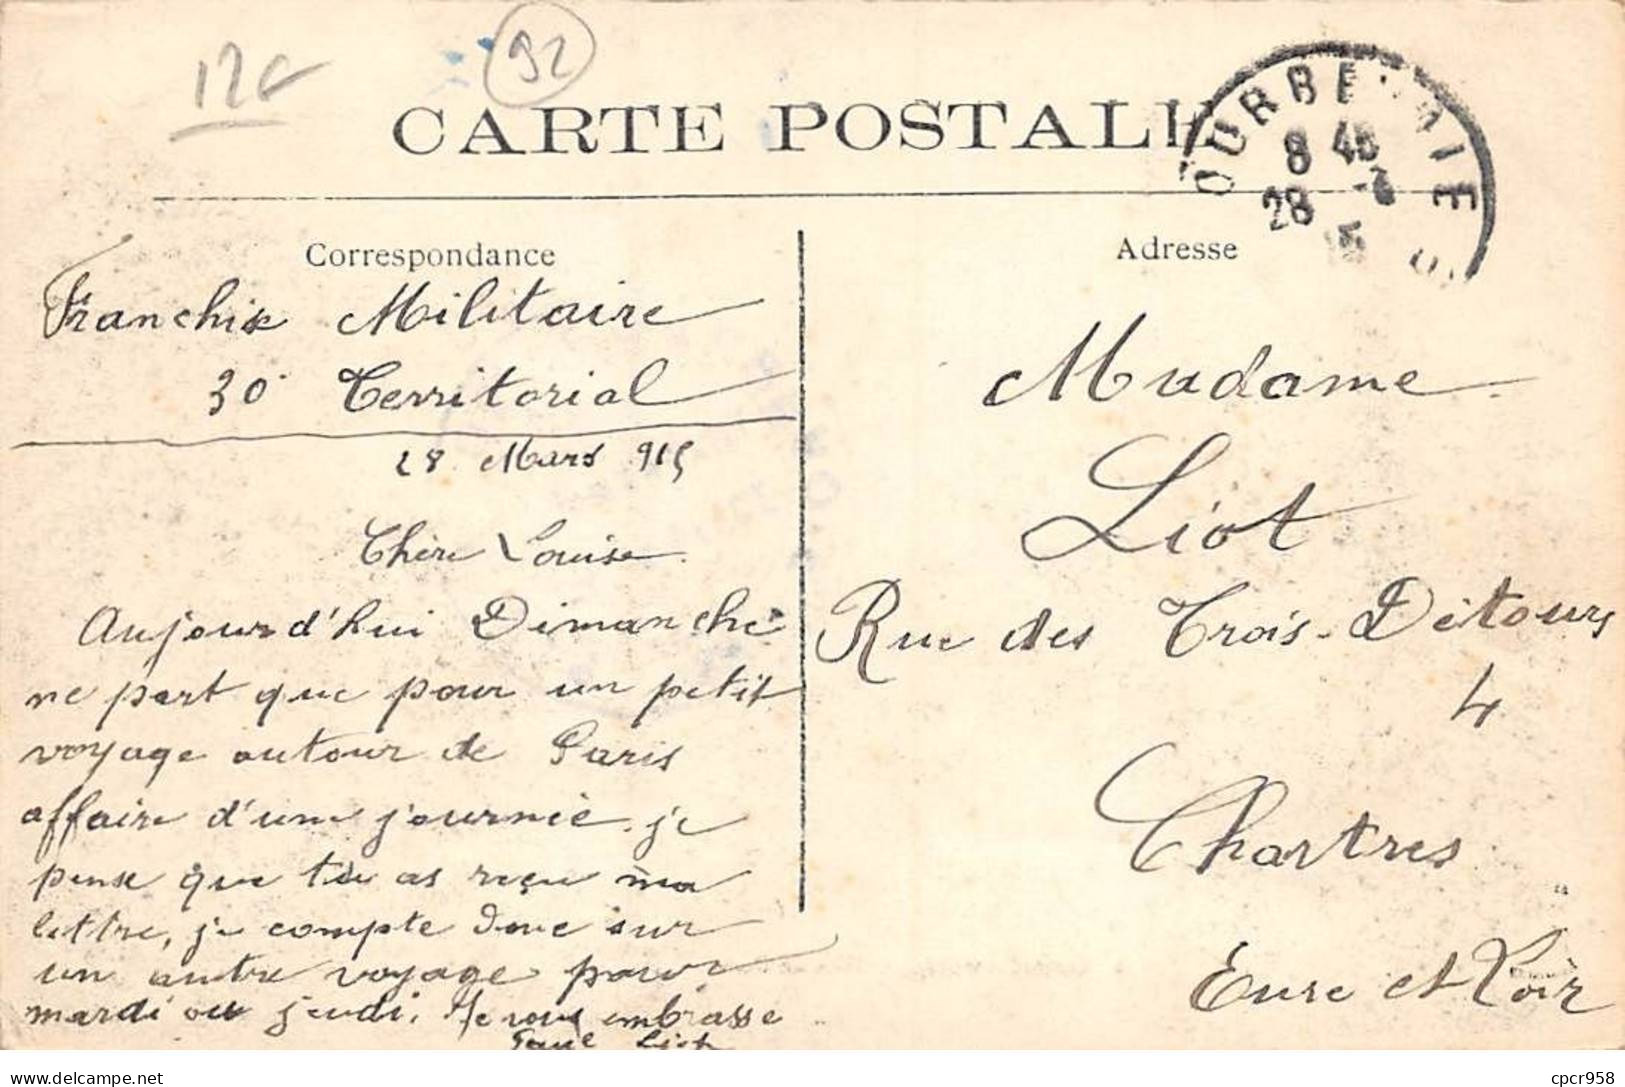 12 F
92
CARTE POSTALE
OURBEVOIE
8 45
28 -3
15
Correspondance
Adresse
Franchise Militaire
30e Territorial
28 Mars 915
Chère Louise
Aujourd'hui Dimanche
ne part que pour un petit
voyage autour de Paris
affaire d'une journée. je
pense que tu as reçu ma
lettre, je compte donc sur
un autre voyage pour
mardi ou jeudi. Je vous embrasse
Paul Liot
Madame
Liot
Rue des Trois-Détours
4
Chartres
Eure et Loir
www.delcampe.net
cpcr958